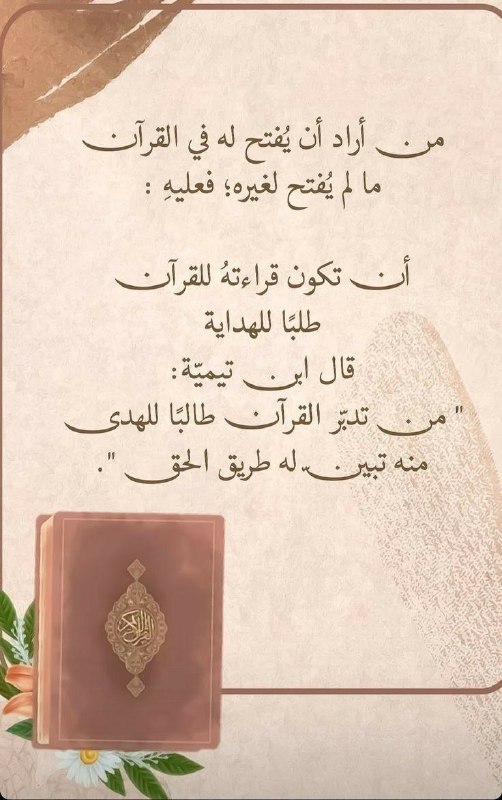 من أراد أن يُفتح له في القرآن
ما لم يُفتح لغيره؛ فعليهِ :
أن تكون قراءتهُ للقرآن
طلبًا للهداية
قال ابن تيميّة:
" من تدبّر القرآن طالبًا للهدى
منه تبين له طريق الحق ".
القرآن الكريم